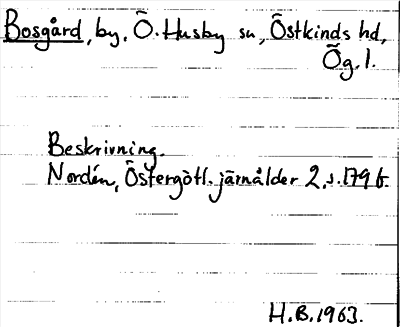 Bosgård, by, Ö. Husby sn, Östkinds hd,
Ög. l.
Beskrivning.
Nordén, Östergötl. järnålder 2, s. 179 f.
H.B. 1963.